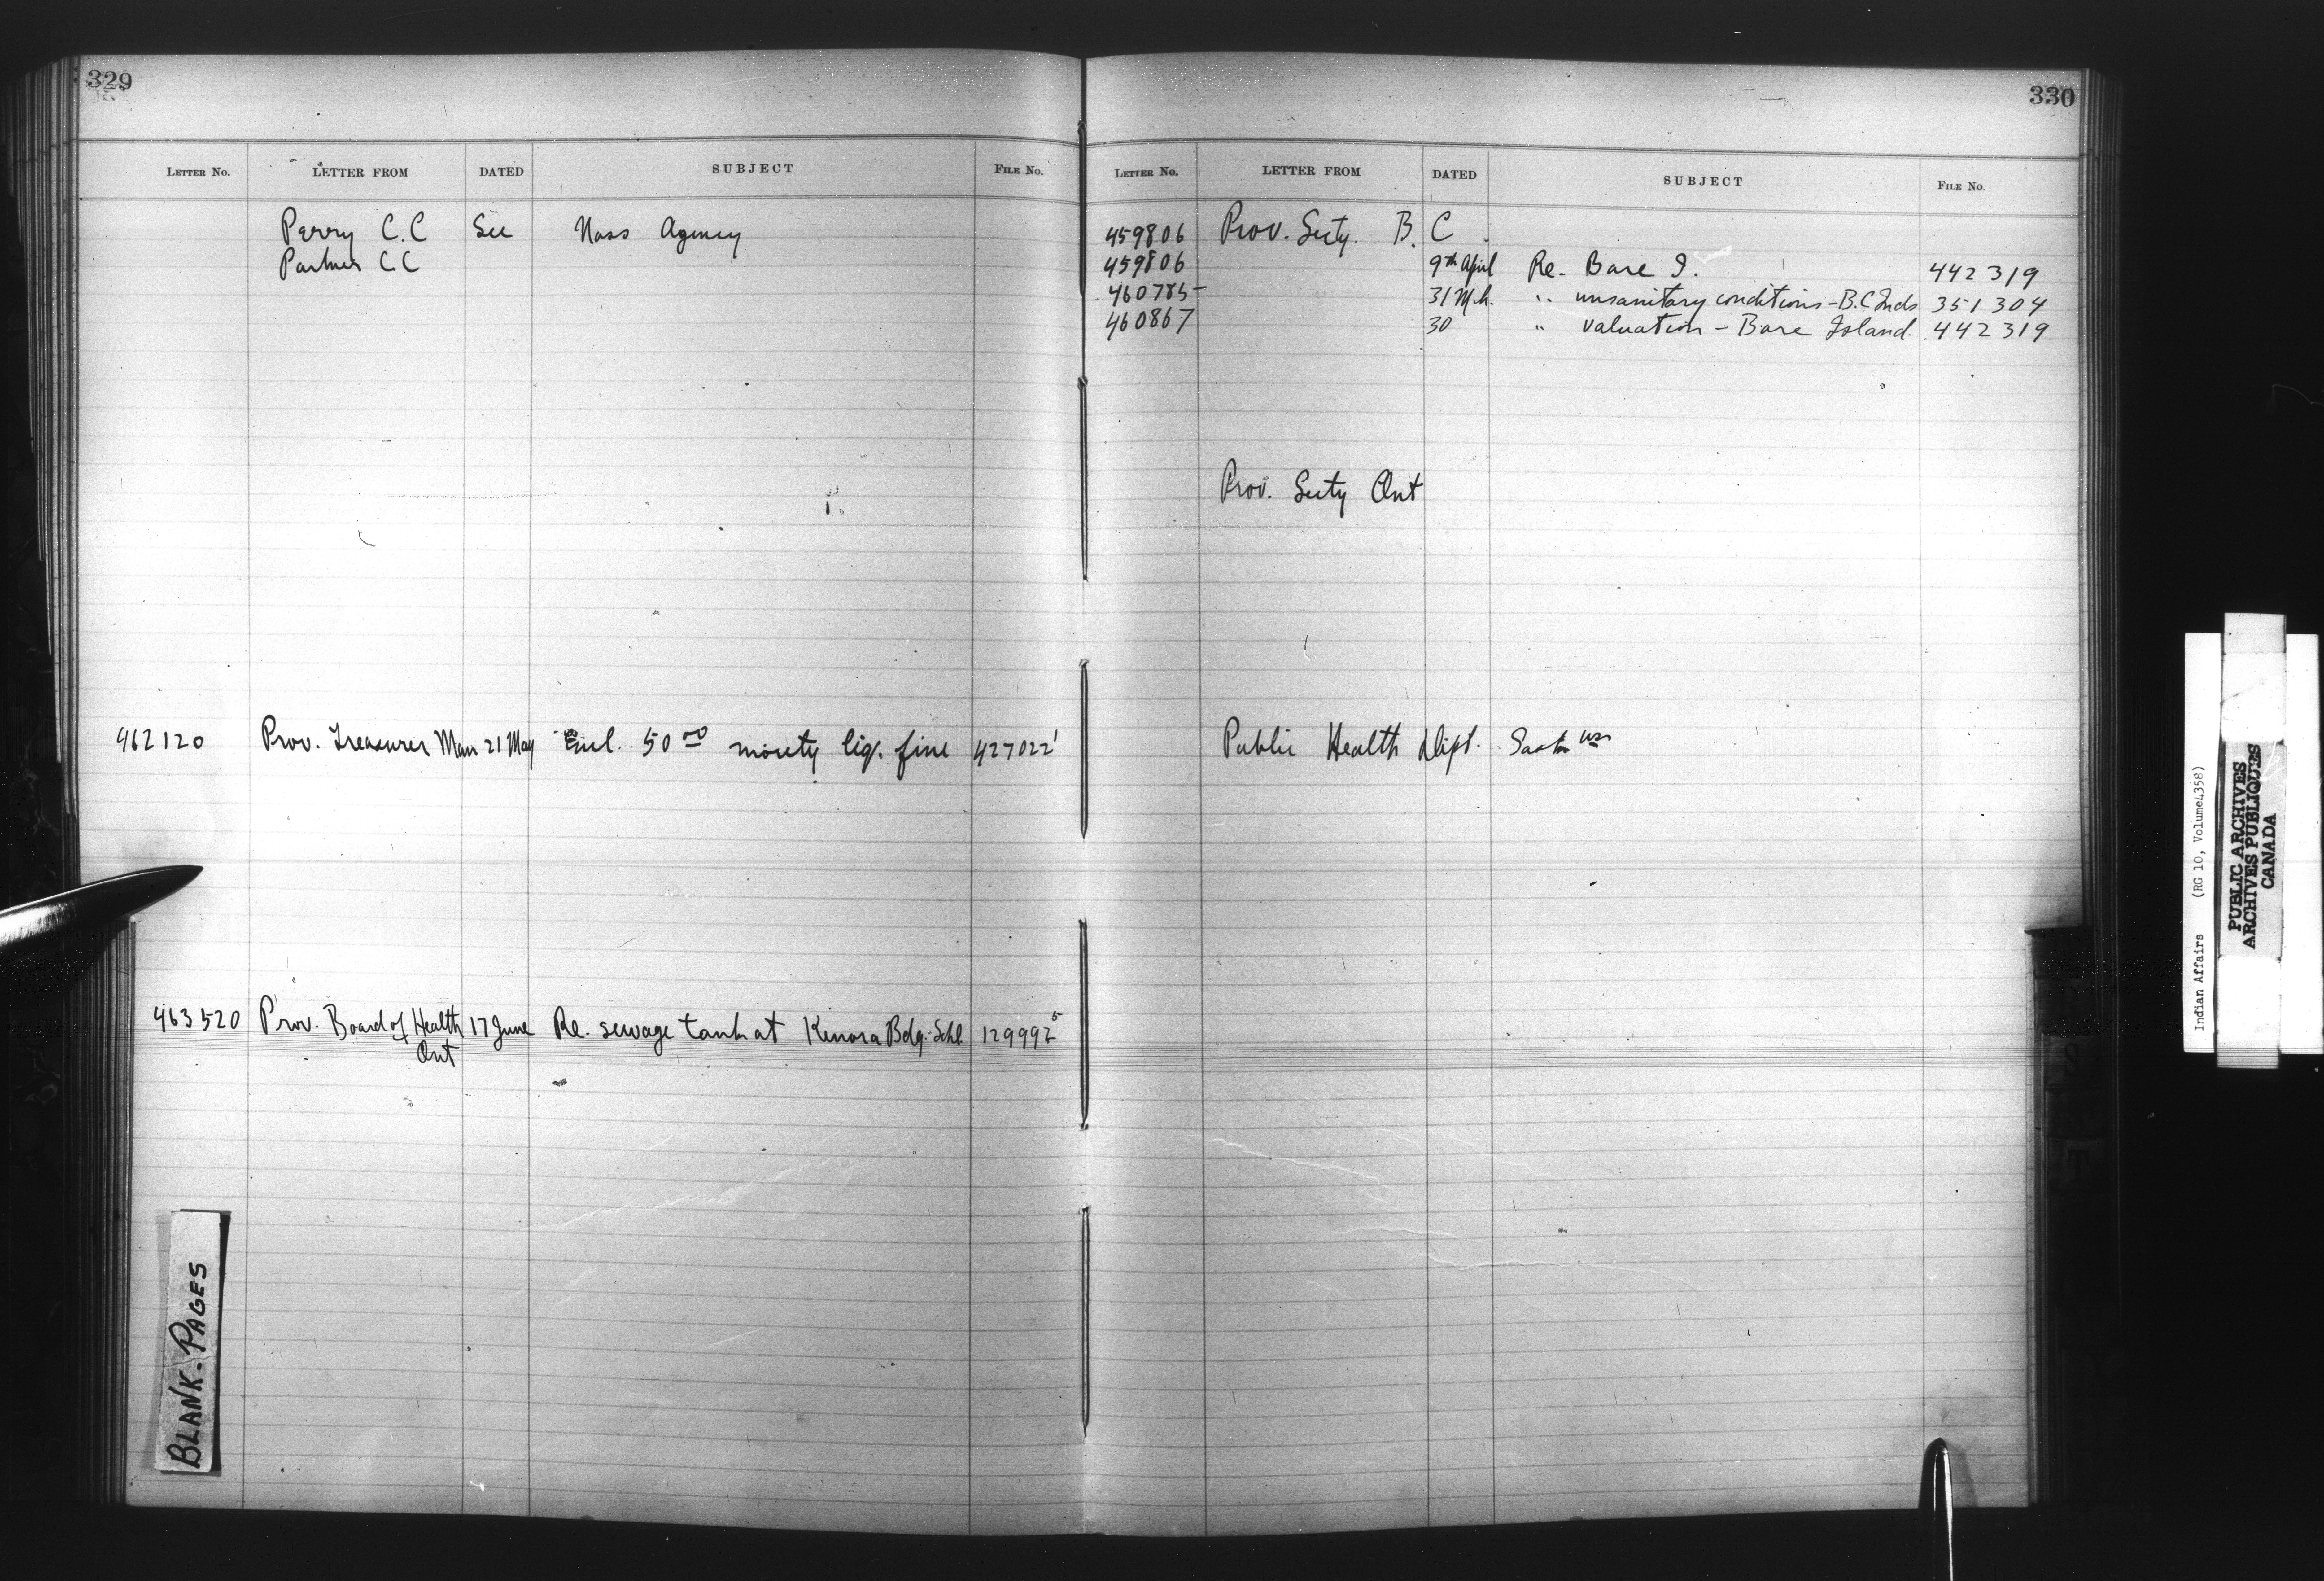 329
LETTER No. LETTER FROM DATED SUBJECT FILE No.
Perry C.C See Nass Agency
C.C
462120 Prov. Treasurer Man 21 May Encl. 50 00 moiety liq. fine 427022 1
463520 Prov. Board of Health 17 June Re. sewage tank at Kenora Bdg. Schl. 129992 5
Ont
BLANK-PAGES
330
LETTER No. LETTER FROM DATED SUBJECT FILE No.
459806 Prov. Secty. B.C
459806 9th April Re. Bare I. 442319
460785 31 Mch. " unsanitary conditions - B.C Inds 351304
460867 30 " valuation - Bare Island. 442319
Prov. Secty Ont
Public Health Dept. Sask
Indian Affairs (RG 10, Volume4358)
PUBLIC ARCHIVES
ARCHIVES PUBLIQUES
CANADA